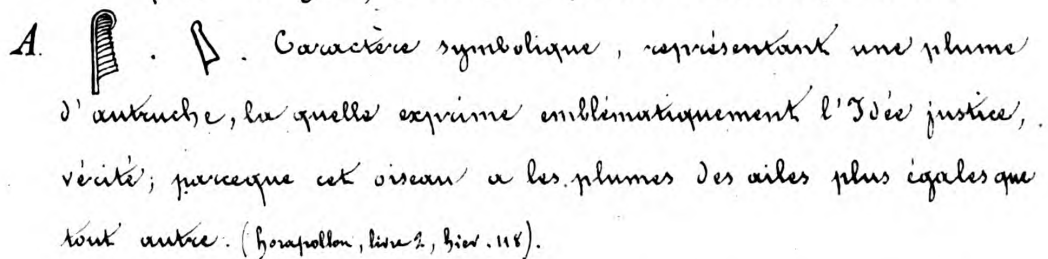 A. 𓆄 . 𓆄 . Caractère symbolique, représentant une plume
d'autruche, la quelle exprime emblématiquement l'Idée justice,
vérité; parceque cet oiseau a les plumes des ailes plus égales que
tout autre. (horapollon, livre 2, hier. 118).